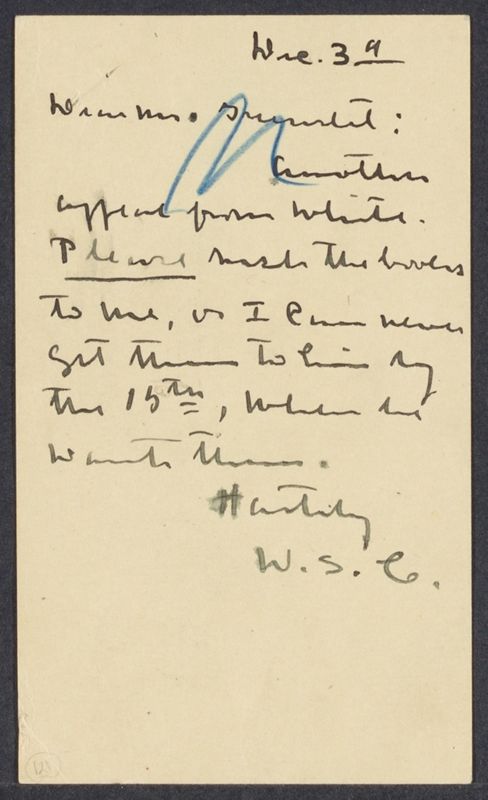 Dec. 3d
Dear Mr. :
Another
appeal from White.
Please rush the books
to me, or I can never
get them to him by
the 15th, when he
wants them.
Hastily
W. S. C.